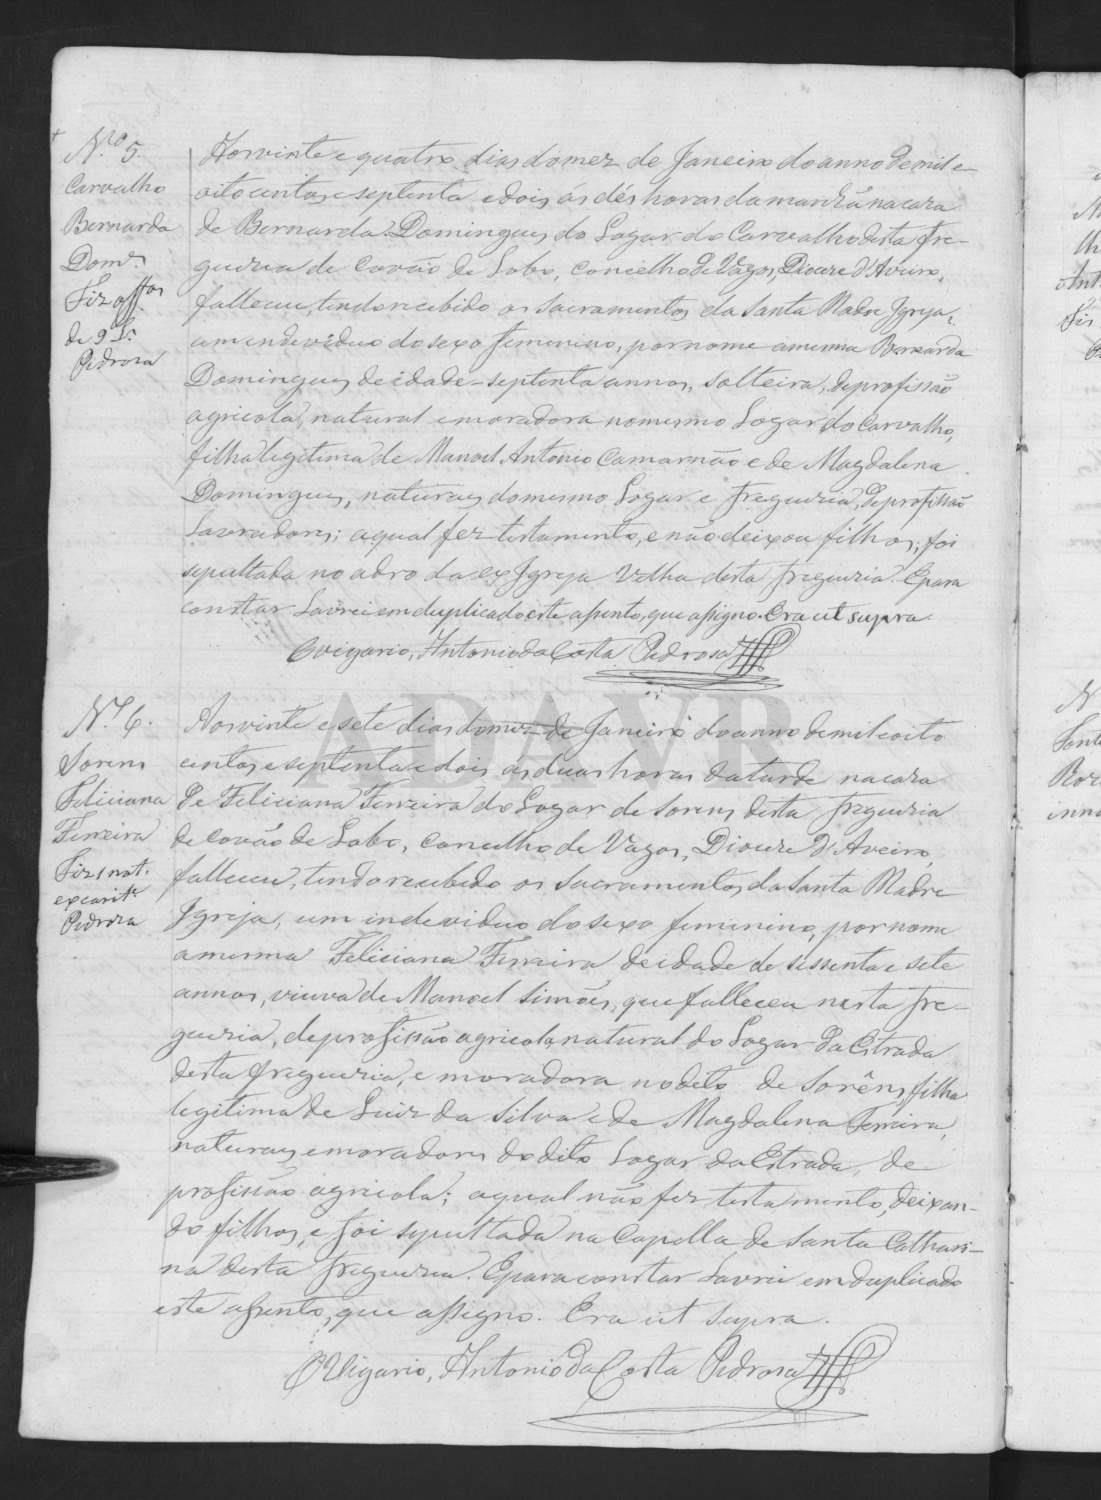 N.º 5.
Carvalho
Bernarda
Dom.es
Fiz off.os
de 9 L.
Pedroza
Aos vinte e quatro dias do mez de Janeiro do anno de mil e
oitocentos e septenta e dois ás dés horas da manhã na caza
de Bernarda Domingues do Logar do Carvalho desta fre-
guezia de Covão de Lobo, Concelho de Vagos, Diocese d'Aveiro,
falleceu, tendo recebido os Sacramentos da Santa Madre Igreja,
um individuo do sexo femenino, por nome a mesma Bernarda
Domingues de idade - septenta annos, solteira, de profissão
agricola, natural e moradora no mesmo Logar do Carvalho,
filha legitima de Manoel Antonio Camarnão e de Magdalena
Domingues, naturaes do mesmo Logar e freguezia, de profissão
Lavradores; a qual fez testamento, e não deixou filhos; foi
sepultada no adro da ex Igreja Velha desta freguezia. E para
constar Lavrei em duplicado este assento, que assigno. Era ut supra.
O vigario, Antonio da Costa Pedroza
ADAVR
N.º 6.
Sorens
Feliciana
Ferreira
Fiz 1 not.
ex carit.e
Pedroza
Aos vinte e sete dias do mez de Janeiro do anno de mil e oito
centos e septenta e dois ás duas horas da tarde na caza
de Feliciana Ferreira do Logar de Sorens desta freguezia
de Covão de Lobo, Concelho de Vagos, Diocese d'Aveiro,
falleceu, tendo recebido os Sacramentos da Santa Madre
Igreja, um individuo do sexo femenino, por nome
a mesma Feliciana Ferreira de idade de sessenta e sete
annos, viuva de Manoel Simões, que falleceu nesta fre-
guezia, de profissão agricola, natural do Logar da Estrada
desta freguezia, e moradora no dito de Sorêns, filha
legitima de Luiz da Silva e de Magdalena Ferreira,
naturaes e moradores do dito Logar da Estrada, de
profissão agricola; a qual não fez testamento, deixan-
do filhos, e foi sepultada na Capella de Santa Cathari-
na desta freguezia. E para constar Lavrei em duplicado
este assento, que assigno. Era ut supra.
O Vigario, Antonio da Costa Pedroza